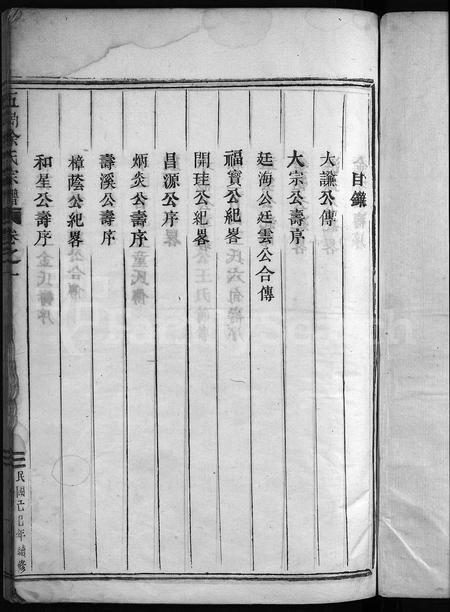 目錄
大謙公傳
大宗公壽序
廷海公廷雲公合傳
福寶公紀畧
開珪公紀畧
昌源公序
炳炎公壽序
壽溪公壽序
樟蔭公紀畧
和星公壽序
余氏宗譜 卷之一
民國 年續修